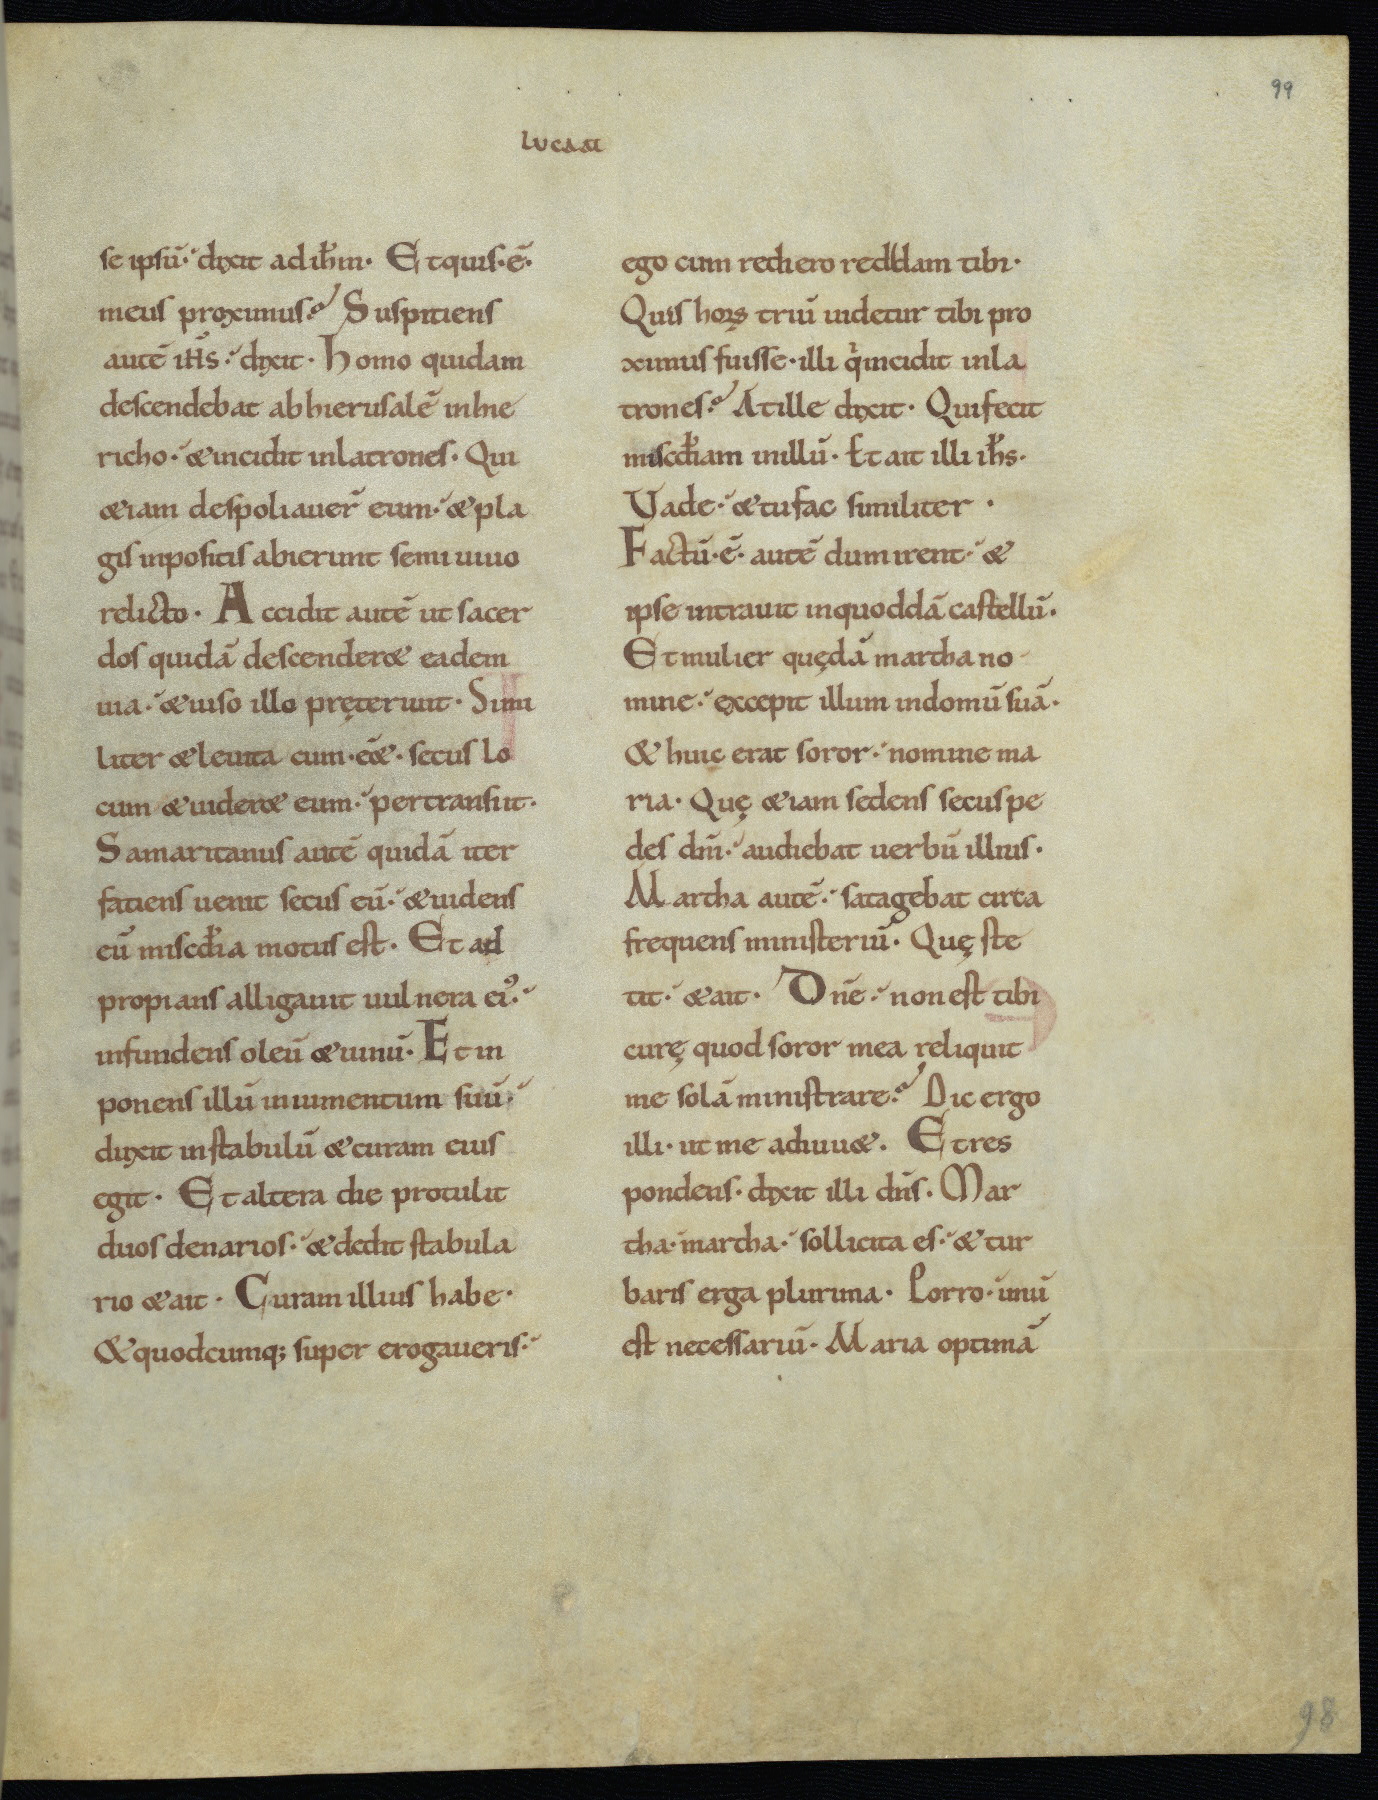 99
lucaæ
se ipsū· dixit ad ih̄m· Et quis·ē·
meus proximus? Suspitiens
autē ih̄s· dixit· Homo quidam
descendebat ab hierusalē in hie
richo· & incidit in latrones· Qui
&iam despoliauer̄ eum· & pla
gis inpositis abierunt semi uiuo
relicto· Accidit autē ut sacer
dos quidā descender& eadem
uia· & uiso illo pręteriuit· Simi
liter & leuita cum·eē&· secus lo
cum & uider& eum· pertransiit·
Samaritanus autē quidā iter
fatiens uenit secus eū· & uidens
eū misc̄dia motus est· Et ad
propians alligauit uulnera ei᾿·
infundens oleū & uinū· Et in
ponens illū in iumentum suū·
duxit in stabulū & curam eius
egit· Et altera die protulit
duos denarios· & dedit stabula
rio & ait· Curam illius habe·
& quodcumq; super erogaueris·
ego cum rediero reddam tibi·
Quis hoꝝ triū uidetur tibi pro
ximus fuisse· illi q̓ incidit in la
trones? At ille dixit· Qui fecit
misc̄diam in illū· Et ait illi ih̄s·
Vade· & tu fac similiter·
Factū·ē· autē dum irent· &
ipse intrauit in quoddā castellū·
Et mulier quędā martha no
mine· excepit illum in domū suā·
& huic erat soror· nomine ma
ria· Quę &iam sedens secus pe
des dn̄i· audiebat uerbū illius·
Martha autē· satagebat circa
frequens ministeriū· Quę ste
tit· & ait· Dn̄e· non est tibi
curę quod soror mea reliquit
me solā ministrare? Dic ergo
illi· ut me adiuu&· Et res
pondens· dixit illi dn̄s· Mar
tha· martha· sollicita es· & tur
baris erga plurima· Porro· unū
est necessariū· Maria optimā
98